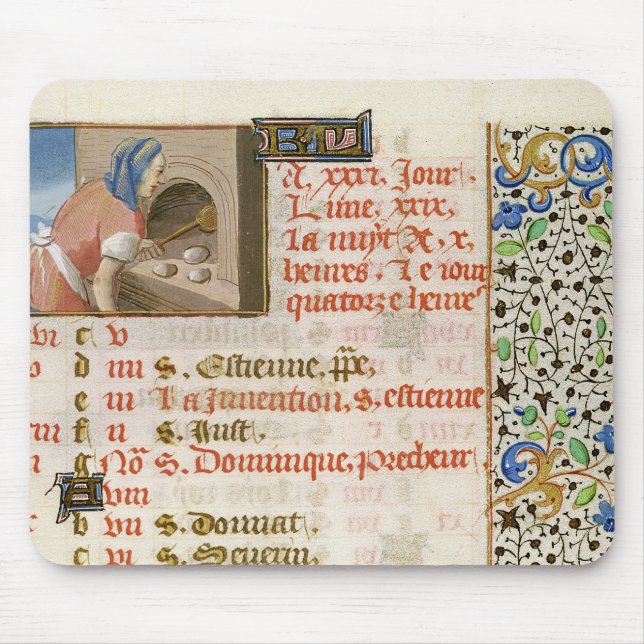 A, xxxi, Jour
Lune, xxix,
La nuyt A, x,
heures, Le iour
quatorze heures
c v
d iiii S. Estienne, ppe,
e iii La Invention, S, estienne
f ii S. Just,
g No S. Dominique, precheur,
A viii
b vii S. Donnat,
c vi S. Severin,